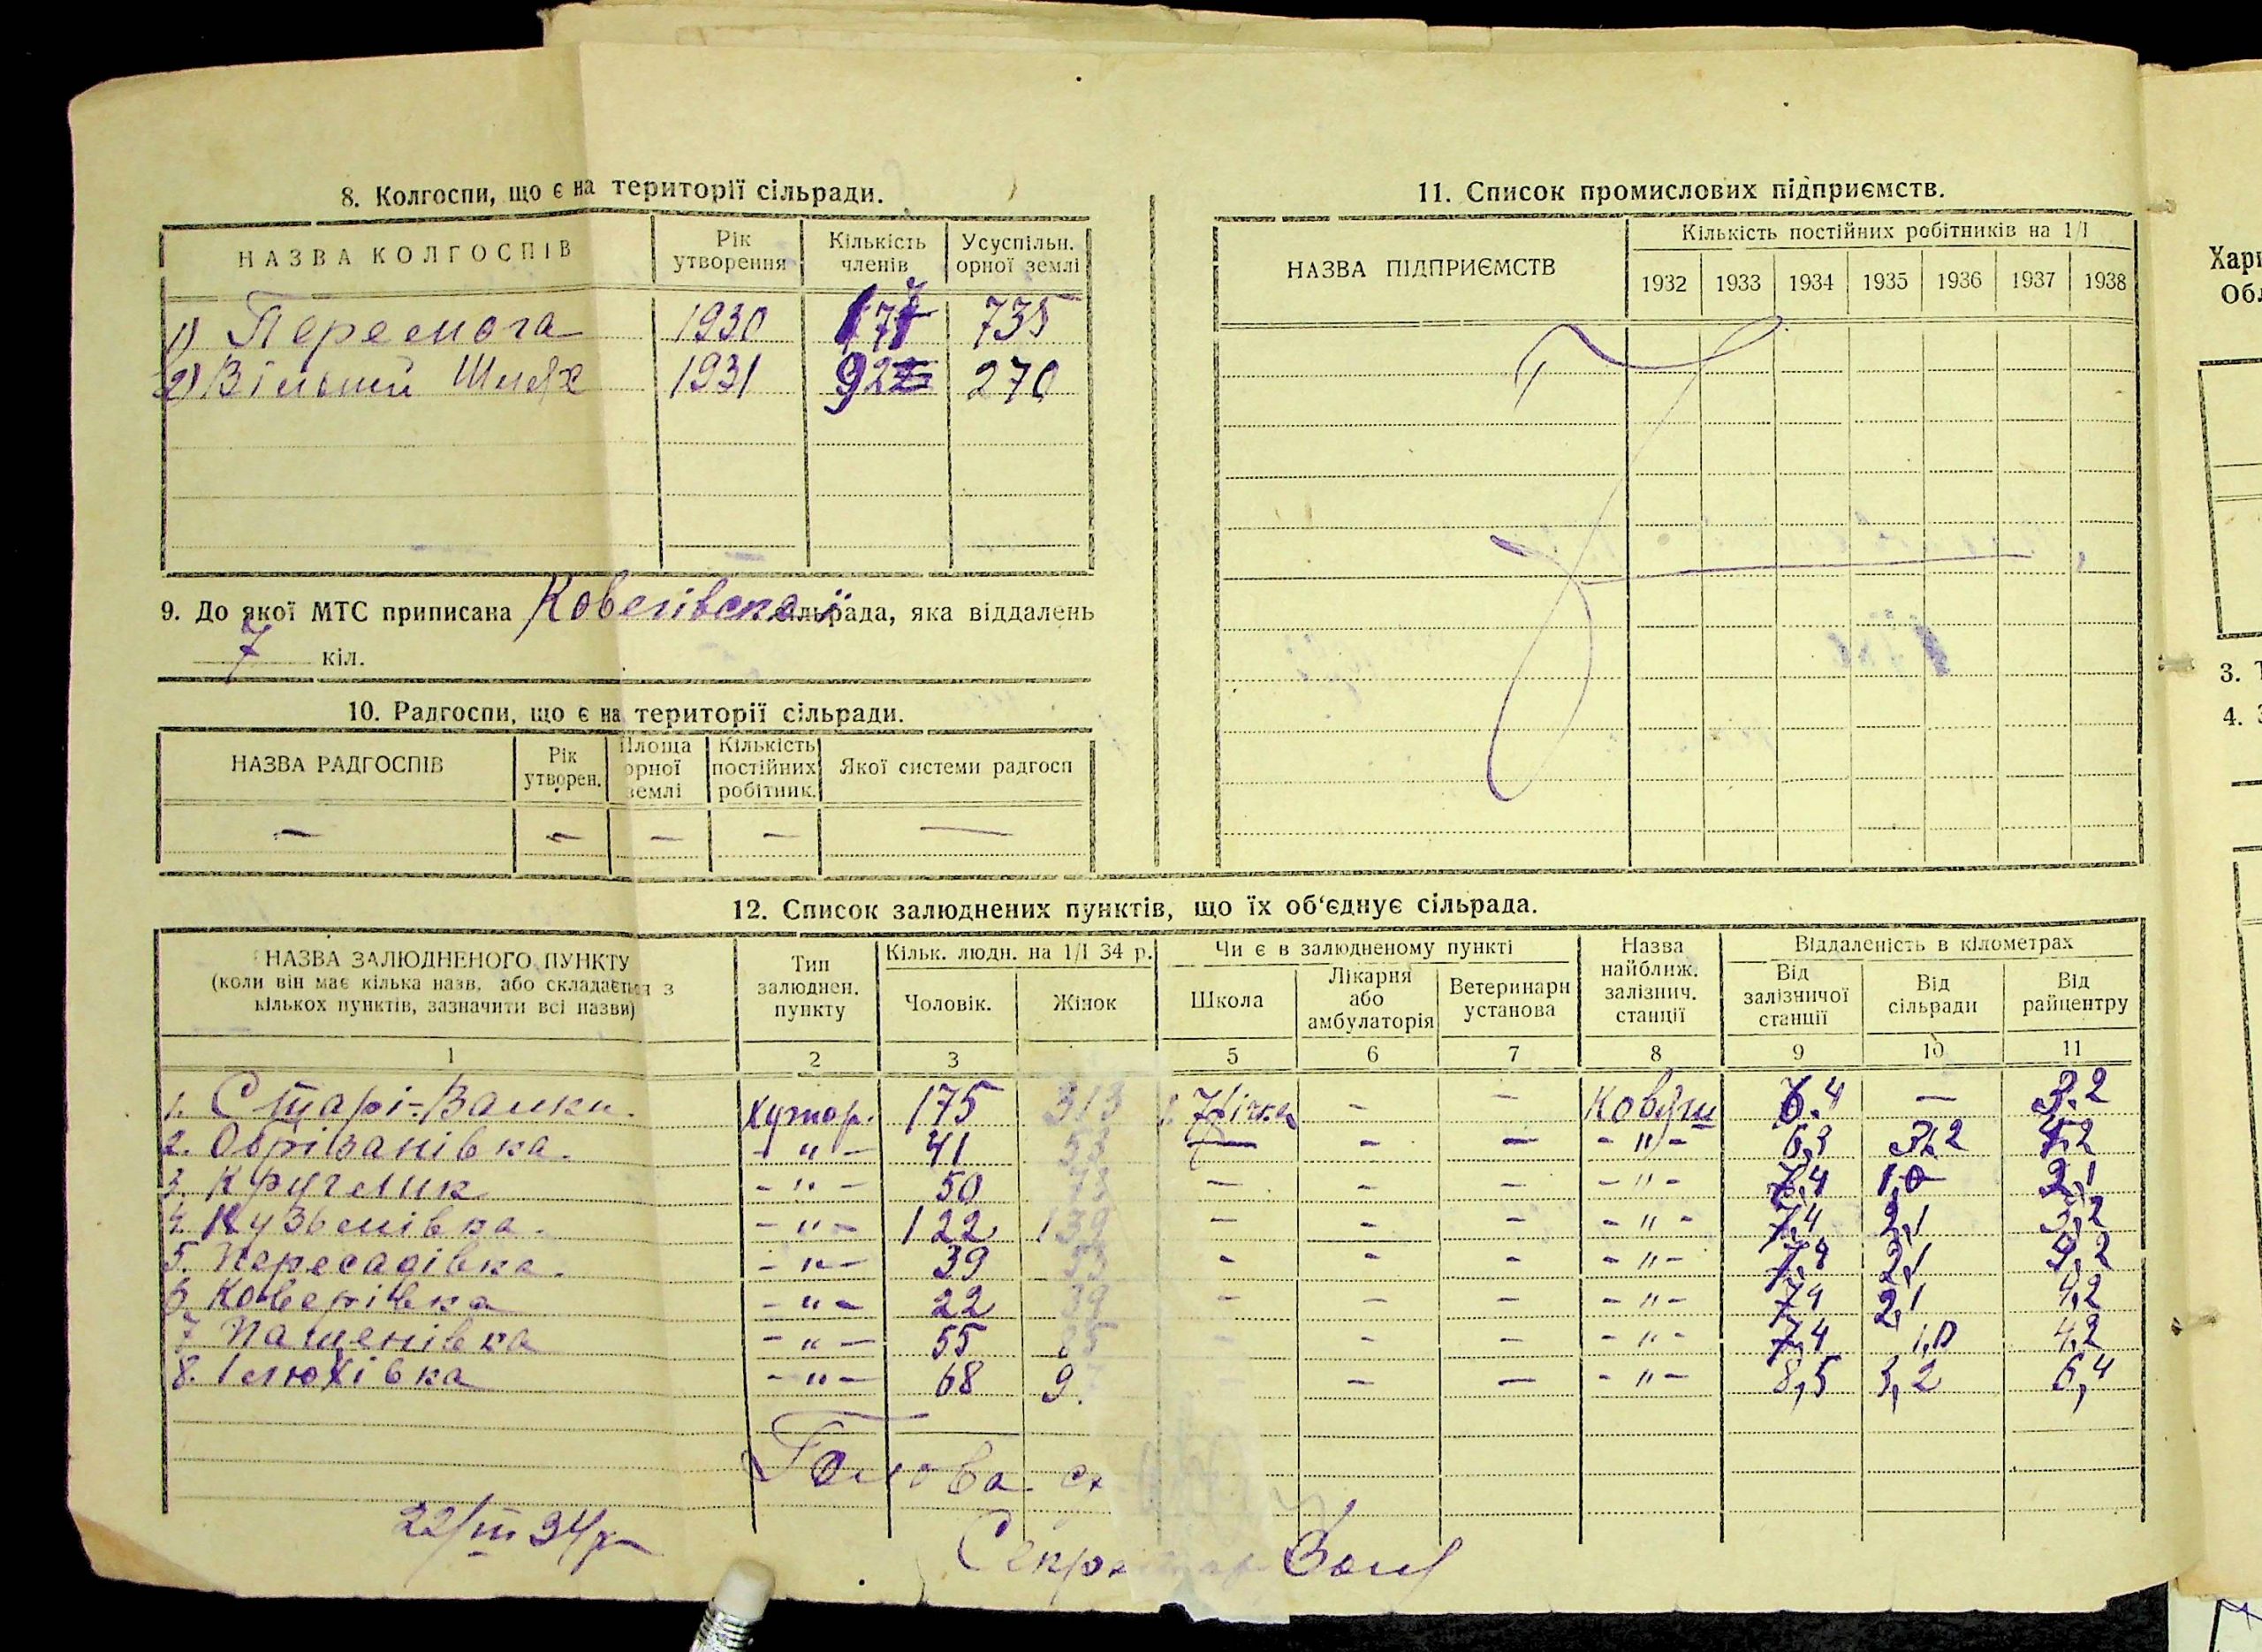 8. Колгоспи, що є на території сільради.
НАЗВА КОЛГОСПІВ Рік утворення Кількість членів Усуспільн. орної землі
1) Перемога 1930 177 735
2) Вільний Шлях 1931 92 270
9. До якої МТС приписана сільрада, яка віддалень
7 кіл.
10. Радгоспи, що є на території сільради.
НАЗВА РАДГОСПІВ Рік утворен. Площа орної землі Кількість постійних робітник. Якої системи радгосп
— — — — —
11. Список промислових підприємств.
НАЗВА ПІДПРИЄМСТВ Кількість постійних робітників на 1/I
1932 1933 1934 1935 1936 1937 1938
12. Список залюднених пунктів, що їх об‘єднує сільрада.
НАЗВА ЗАЛЮДНЕНОГО ПУНКТУ (коли він має кілька назв, або складається з кількох пунктів, зазначити всі назви) Тип залюднен. пункту Кільк. людн. на 1/I 34 р. Чоловік. Жінок Чи є в залюдненому пункті Школа Лікарня або амбулаторія Ветеринарн установа Назва найближ. залізнич. станції Віддаленість в кілометрах Від залізничої станції Від сільради Від райцентру
1 2 3 5 6 7 8 9 10 11
1. Старі-Валки. хутор. 175 313 — — 6.4 — 3.2
2. -"- 41 53 — — — -"- 6,3 3,2
3. Кругелик -"- 50 — — — -"- 7,4 1,0 2,1
4. Кузьмівка. -"- 122 139 — — — -"- 7,4 2,1 3,2
5. Пересадівка. -"- 39 53 - - - -"- 2,1
6. Коверівка -"- 22 39 - — — -"- 2,1 4,2
7. Пащенівка -"- 55 85 — - — -"- 7,4 1,0 4,2
8. Ілюхівка -"- 68 9 — — -"- 8,5 3,2 6,4
Голова
22/III 34 р
Секретар